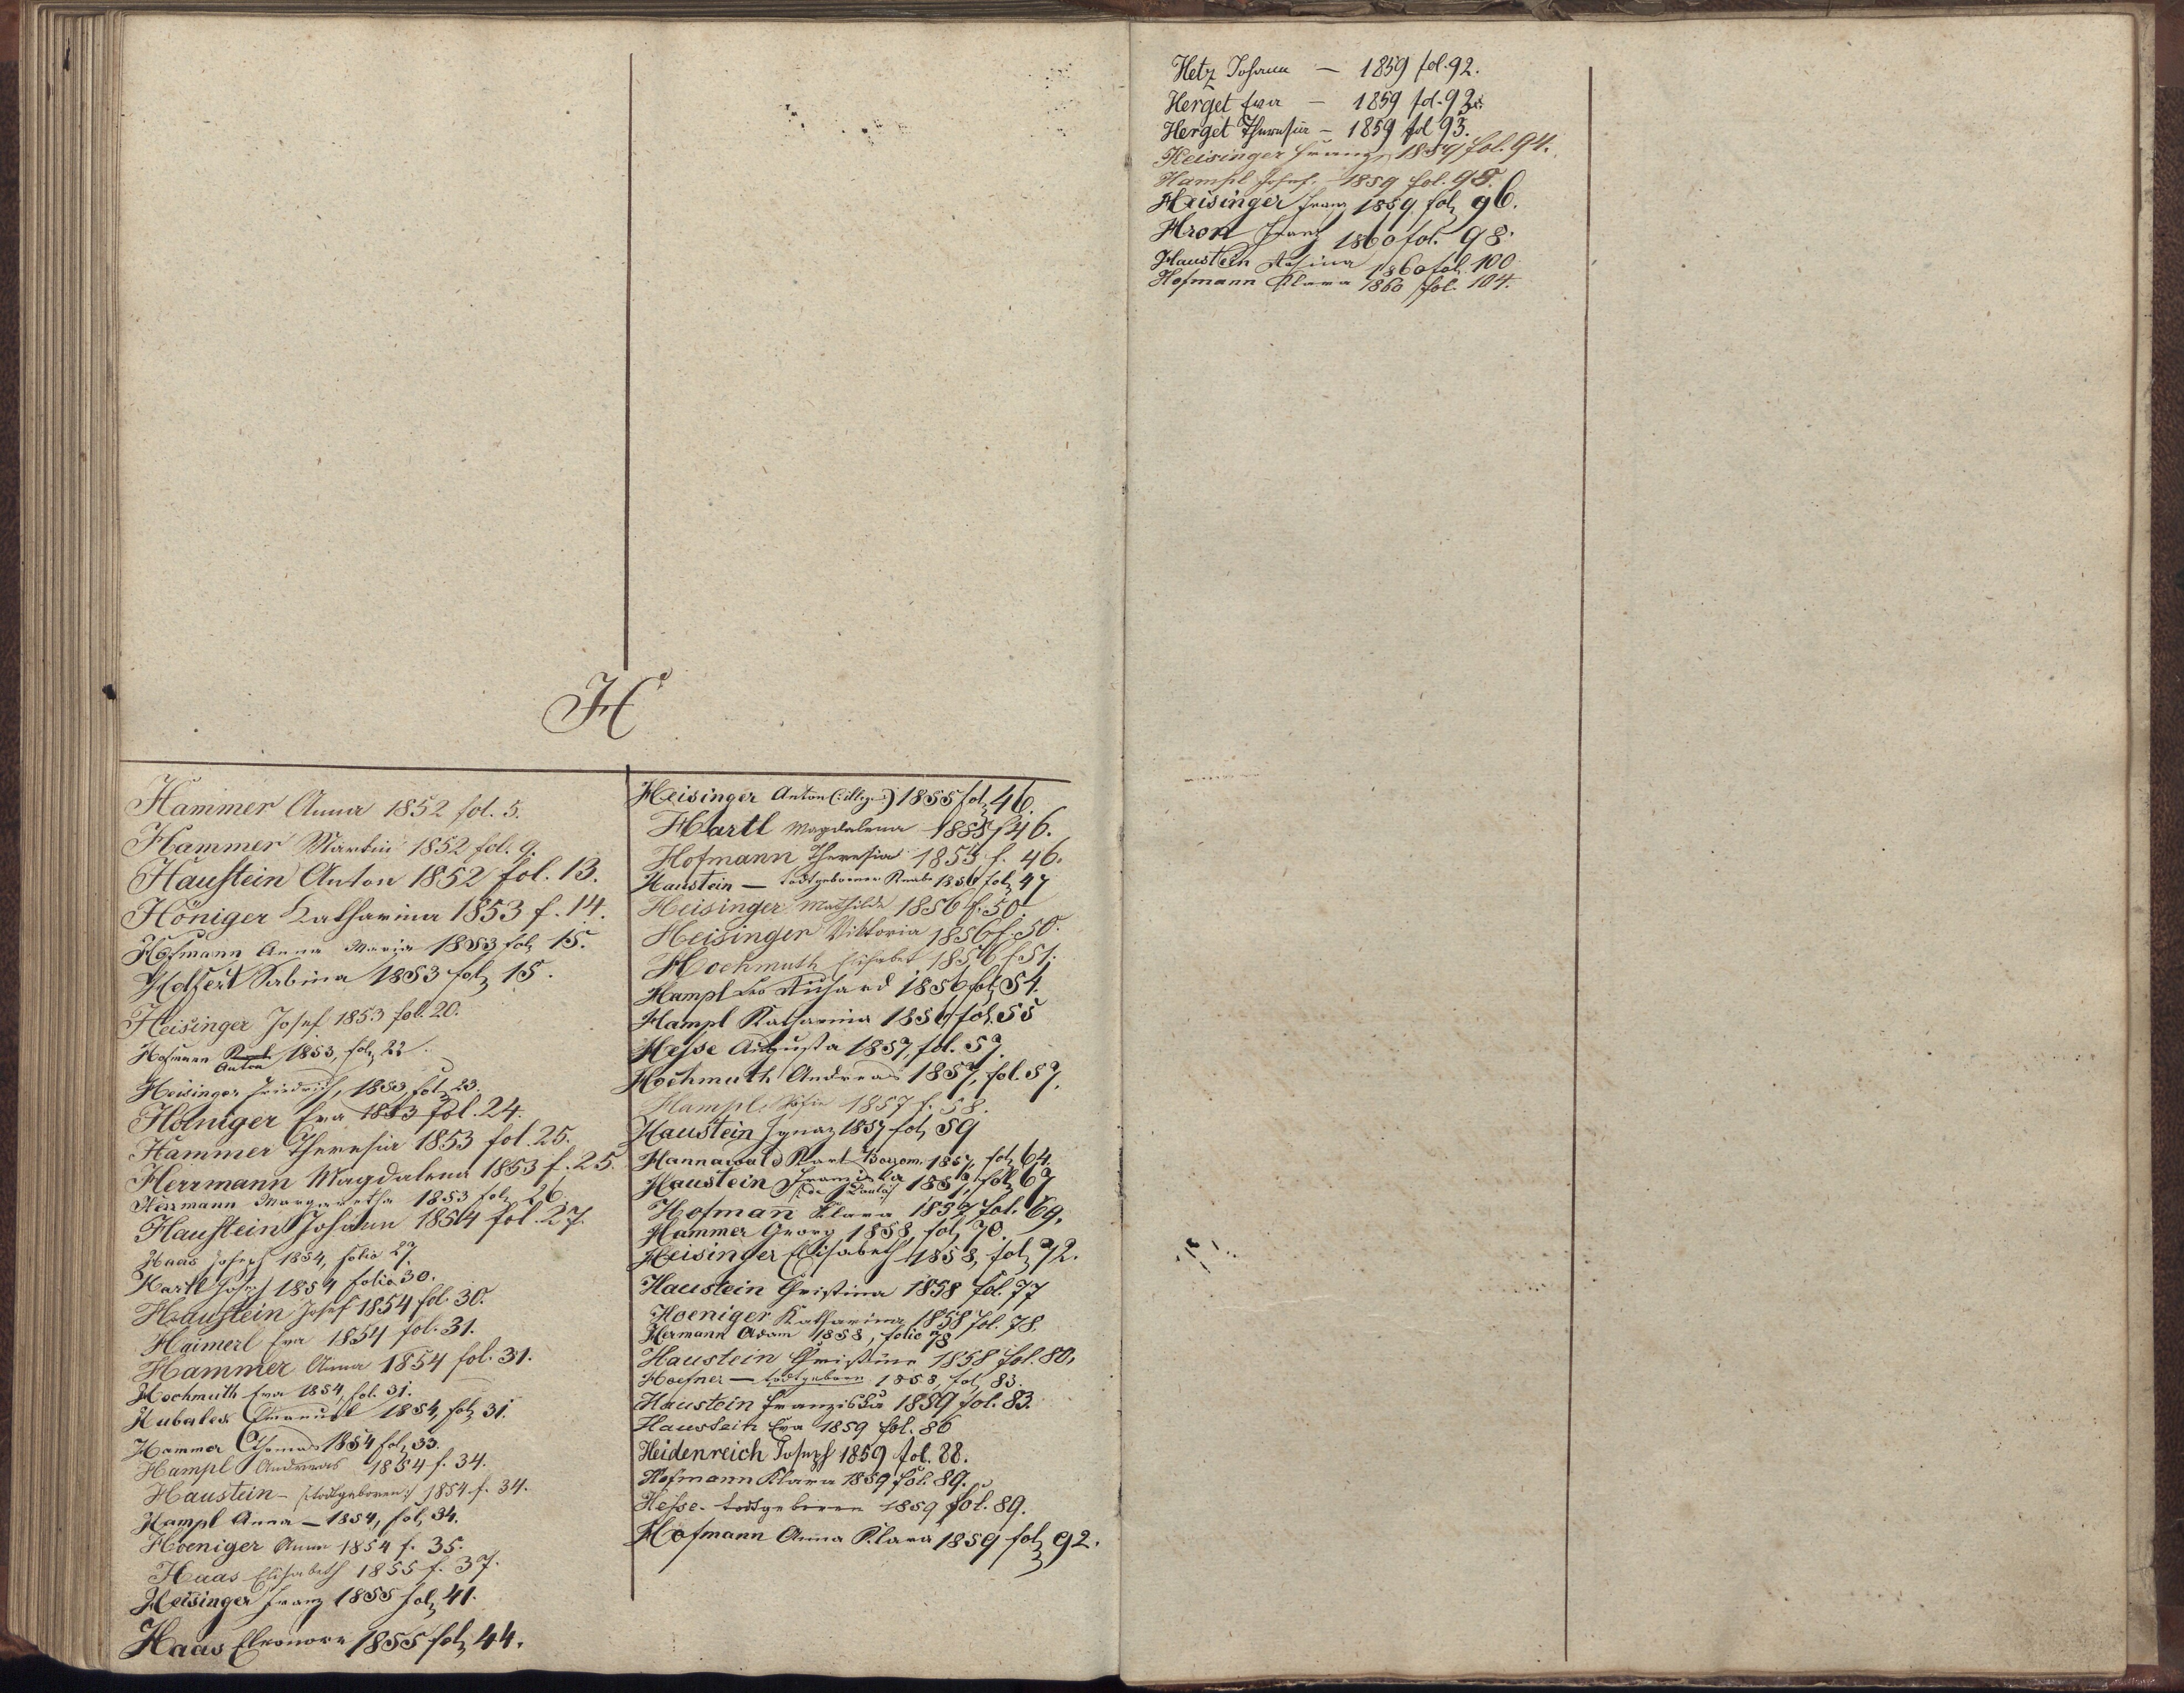 H
Hammer Anna 1852 fol. 5.
Hammer Martin 1852 fol. 9.
Haustein Anton 1852 fol. 13.
Höniger Katharina 1853 f. 14.
Hofmann Anna Maria 1853 fol. 15.
Holfert Sabina 1853 fol. 15.
Heisinger Josef 1853 fol. 20.
Hofmann 1853, fol. 22.
Anton
Heisinger Friedrich, 1853, fol. 23.
Hoeniger Eva 1853 fol. 24.
Hammer Theresia 1853 fol. 25.
Herrmann Magdalena 1853 f. 25.
Herrmann Margaretha 1853 fol. 26.
Haustein Johann 1854 fol. 27.
Haas Joseph 1854, folio 27.
Hartl Josef 1854 folio 30.
Haustein Josef 1854 fol. 30.
Haimerl Eva 1854 fol. 31.
Hammer Anna 1854 fol. 31.
Hochmuth Eva 1854, fol. 31.
Hubalek Emanuel 1854, fol. 31.
Hammer Thomas 1854 fol. 33.
Hampl Andreas 1854 f. 34.
Haustein – /:todtgeboren:/ 1854 f. 34.
Hampl Anna – 1854, fol. 34.
Hoeniger Anna 1854 f. 35.
Haas Elisabeth 1855 f. 37.
Heisinger Franz 1855 fol. 41.
Haas Eleonora 1855 fol. 44.
Heisinger Anton (: illeg :) 1855 fol. 46.
Hartl Magdalena 1855 f 46.
Hofmann Theresia 1855 f. 46.
Haustein — todtgeborener Knabe 1856 fol. 47
Heisinger Mathilde 1856 f. 50.
Heisinger Viktoria 1856 f. 50.
Hochmuth Elisabet 1856 f 51.
Hampl Leo Richard 1856 fol. 54.
Hampl Katharina 1856 fol. 55
Hesse Augusta 1857, fol. 57.
Hochmuth Andreas 1857, fol. 57.
Hampl Sofie 1857 f. 58.
Haustein Ignaz 1857 fol. 59
Hannawald Karl Borrom. 1857, fol. 64.
Haustein Franziska 1857, fol. 67
/: de Paula :/
Hofman Klara 1857 fol. 69.
Hammer Georg 1858, fol. 70.
Heisinger Elisabeth 1858, fol. 72.
Haustein Christina 1858 fol. 77
Hoeniger Katharina 1858 fol. 78.
Hermann Adam 1858, folio 78
Haustein Christine 1858 fol. 80.
Hoefner — todtgeboren 1858, fol. 83.
Haustein Franziska 1859 fol. 83.
Haustein Eva 1859 fol. 86
Heidenreich Joseph 1859 fol. 88.
Hofmann Klara 1859 fol. 89.
Hesse – todtgeboren 1859 fol. 89.
Hofmann Anna Klara 1859 fol. 92.
Hetz Johann – 1859 fol. 92.
Herget Eva – 1859 fol. 92.
Herget Theresia – 1859 fol 93.
Heisinger Franz 1859 fol. 94.
Hampl Josef. 1859 fol. 95.
Heisinger Franz 1859 fol. 96.
Hron Franz 1860 fol. 98.
Haustein Rosina 1860 fol. 100
Hofmann Klara 1860 fol. 104.